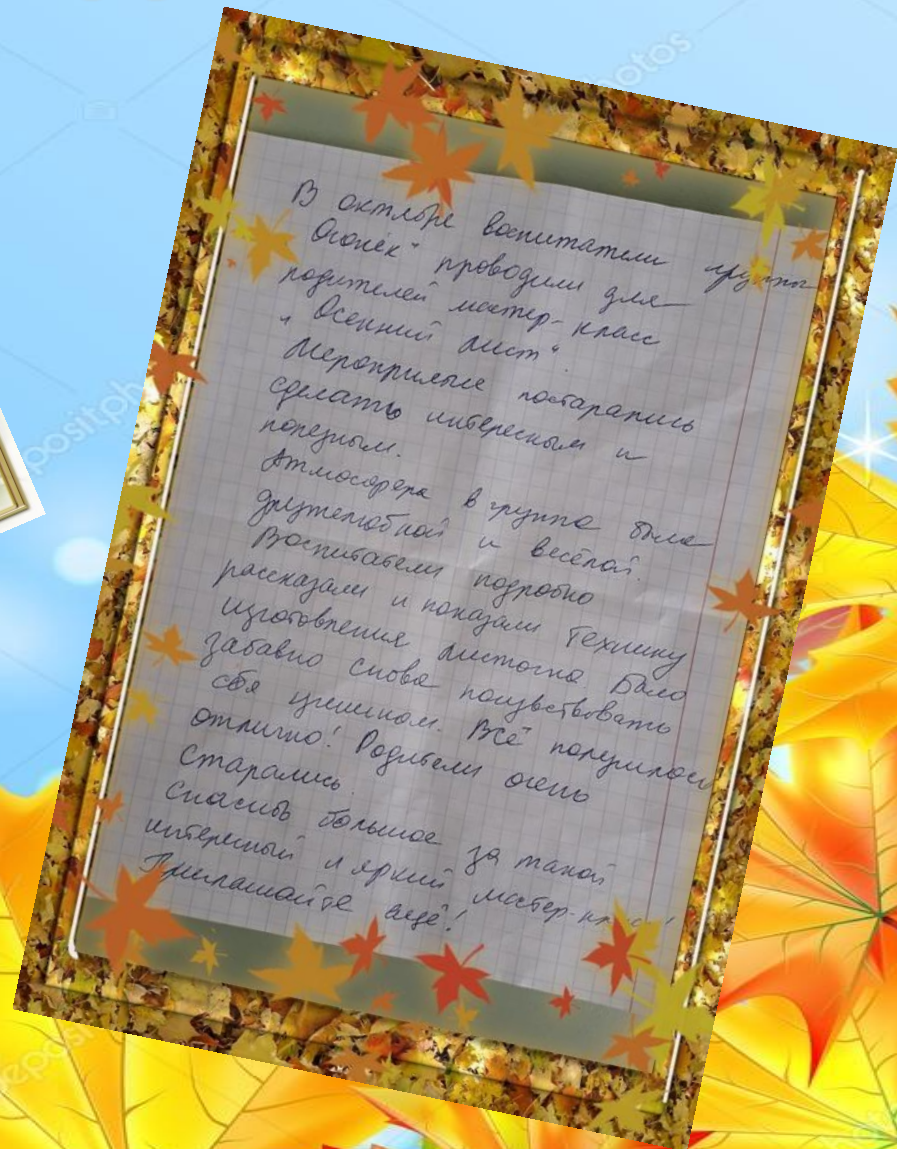 В октябре воспитатели группы
Огонёк" проводили для
родителей мастер-класс
„Осенний лист"
Мероприятие постарались
сделать интересным и
полезным.
Атмосфера в группе была
дружелюбной и весёлой.
Воспитатели подробно
рассказали и показали технику
изготовления листочка. Было
забавно снова почувствовать
себя учеником. Всё получилось
отлично! Родители очень
старались.
Спасибо большое за такой
интересный и яркий мастер-класс!
Приглашайте ещё!
depositphotos